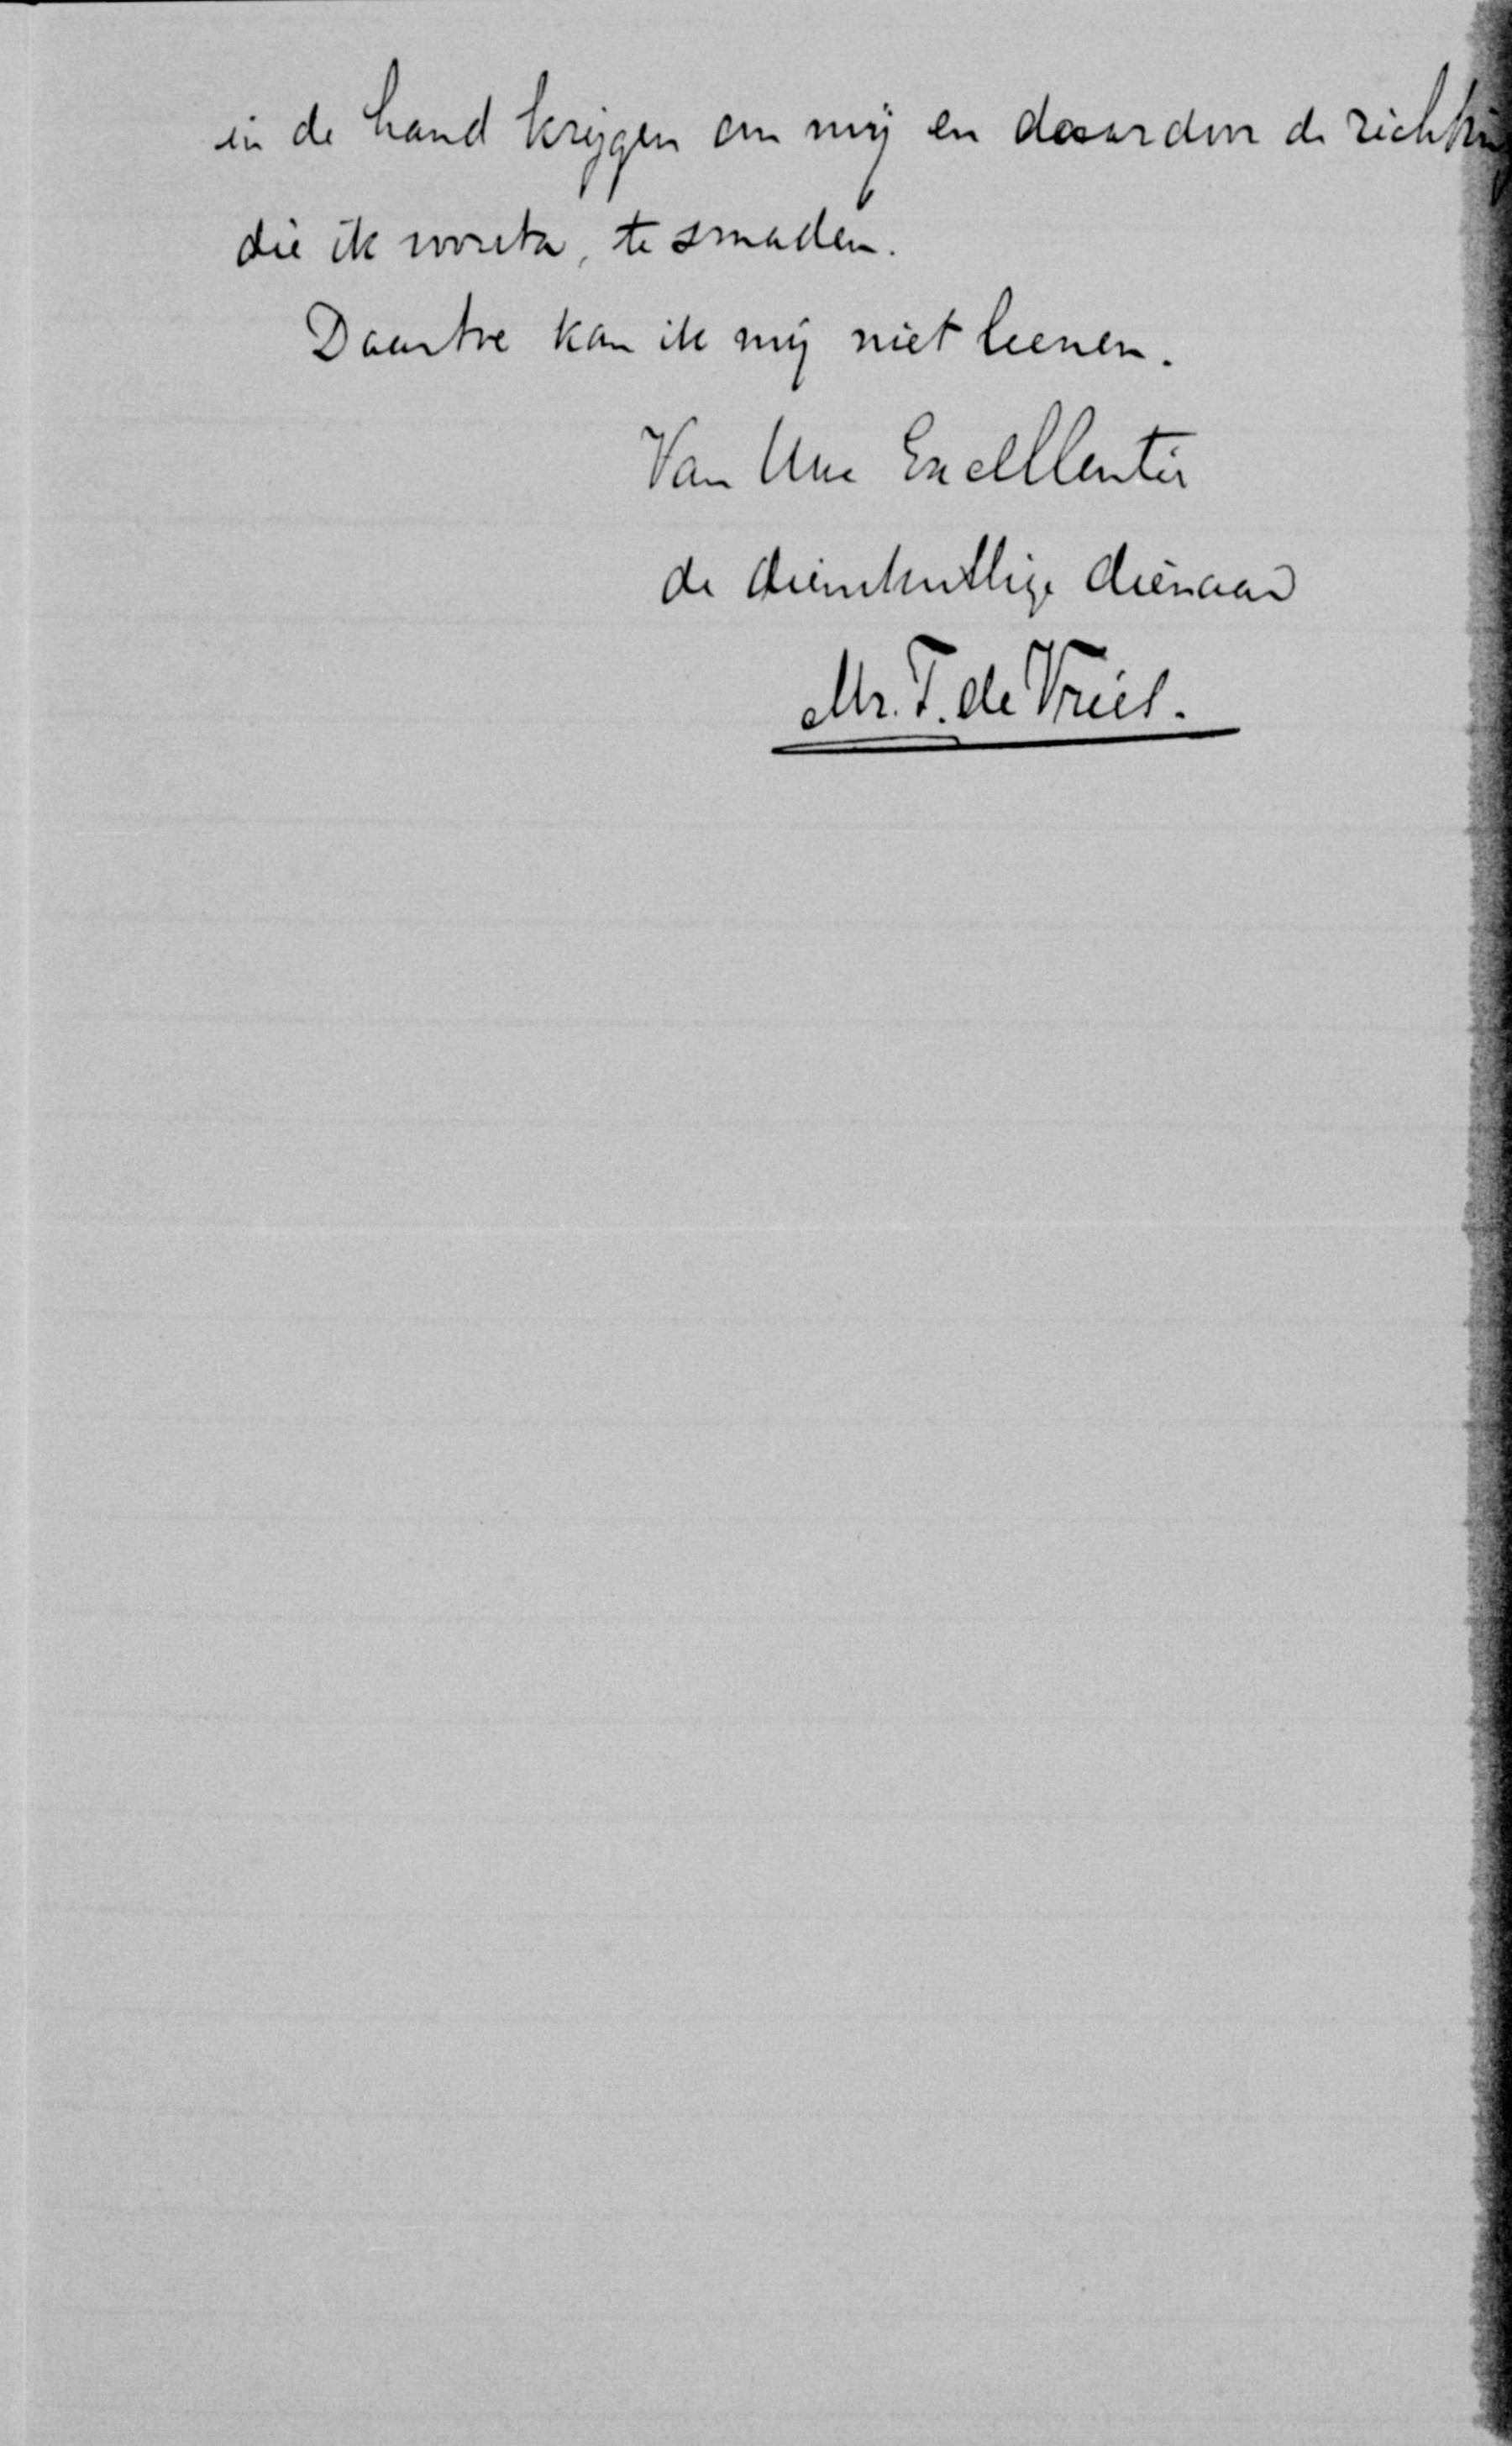 in de hand krijgen om mij en daardoor de richting
die ik voorsta, te smaden.
Daartoe kan ik mij niet leenen.
Van Uwe Excellentie
de dienstwillige dienaar
Mr. T. de Vries.